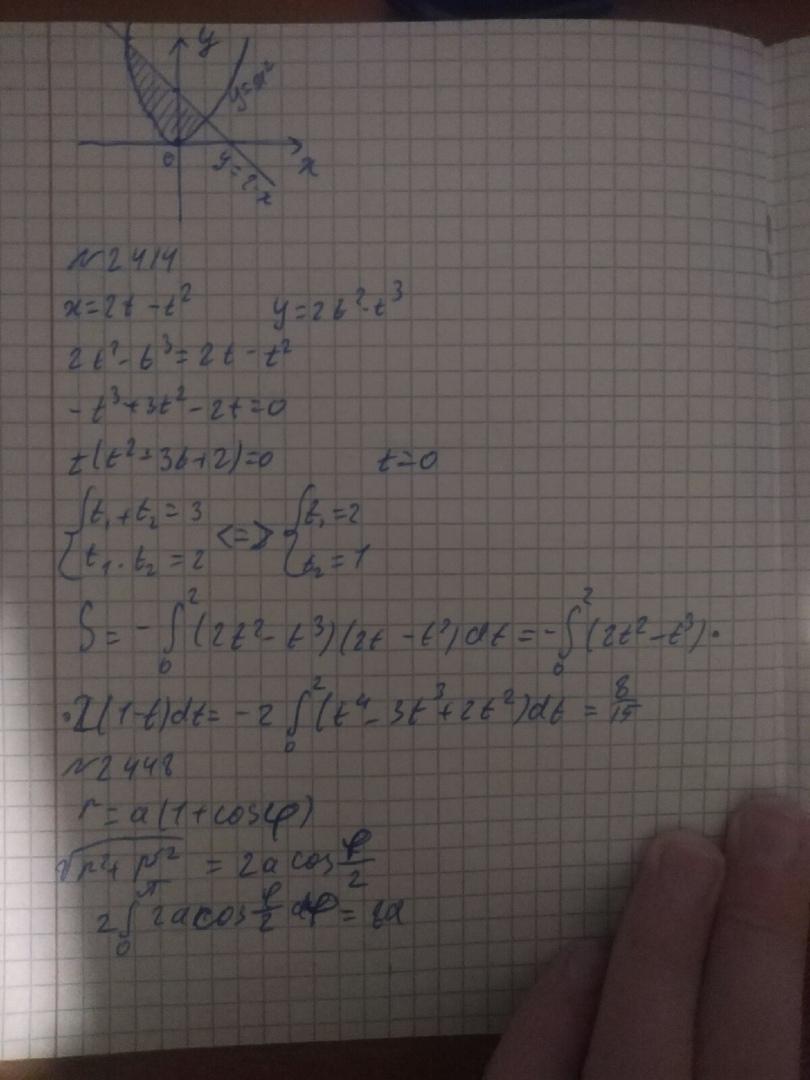 y
y=x²
0
x
y=2-x
N2414
x=2t-t² y=2t²-t³
2t²-t³=2t-t²
-t³+3t²-2t=0
t(t²-3t+2)=0 t=0
{t₁+t₂=3 <=> {t₁=2
{t₁·t₂=2 {t₂=1
S=-∫₀²(2t²-t³)(2t-t²)dt=-∫₀²(2t²-t³)·
·2(1-t)dt=-2∫₀²(t⁴-3t³+2t²)dt=8/15
N2448
r=a(1+cosφ)
√(r²+r'²)=2a cos φ/2
2∫₀^π 2a cos φ/2 dφ=8a